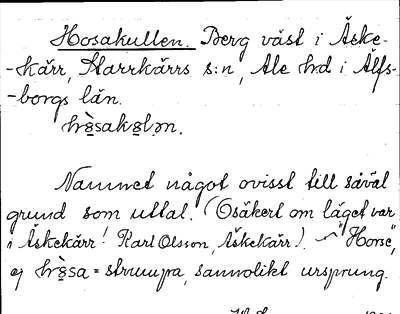 Hosakullen. Berg väst i Äske-
-kärr, Starrkärrs s:n, Ale hd i Älfs-
-borgs län.
hòsakɵlən.
Namnet något ovisst till såväl
grund som uttal. (Osäkert om läget var
i Äskekärr! Karl Olsson, Äskekärr). "Horse",
ej hòsa = strumpa, sannolikt ursprung.